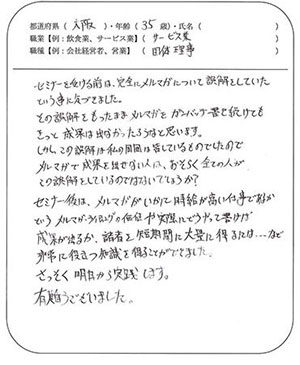 都道府県( 大阪 )・年齢( 35 歳)・氏名(
職業【例:飲食業、サービス業】( サービス業 )
職種【例:会社経営者、営業】( 団体理事 )
セミナーを受ける前は、完全にメルマガについて誤解をしていた
という事に気づきました。
その誤解をもったままメルマガをガンバって書き続けても
きっと成果は出なかったろうなと思います。
しかし、この誤解は私の周囲は皆しているものでしたので
メルマガで成果を出せない人は、おそらく全ての人が
この誤解をしているのではないでしょうか?
セミナー後は、メルマガがいかに時給が高い仕事であるか
というメルマガ・ライティングの価値や実際にどうやって書けば
成果が出るか、読者を短期間に大量に得るには…など
非常に役立つ知識を得ることができました。
さっそく明日から実践します。
有難うございました。